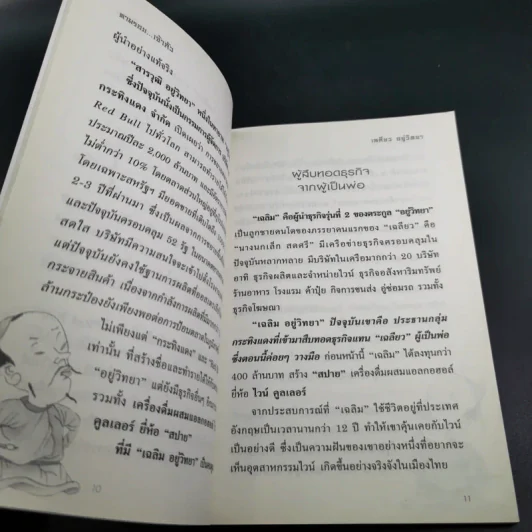 ตามรอย...เจ้าสัว
ผู้นำอย่างแท้จริง
"สารวุฒิ อยู่วิทยา" หนึ่งใน
ซึ่งปัจจุบันนั่งเป็นกรรมการผู้จัดการ
กระทิงแดง จำกัด เปิดเผยว่า การ
Red Bull ไปทั่วโลก สามารถทำราย
ประมาณปีละ 2,000 ล้านบาท และมี
ไม่ต่ำกว่า 10% โดยตลาดส่วนใหญ่อยู่
โดยเฉพาะสหรัฐฯ มียอดขายที่เติบโต
2-3 ปีที่ผ่านมา ซึ่งเป็นผลจากการขยาย
และปัจจุบันครอบคลุม 52 รัฐ ใน
สดใส บริษัทมีความสนใจจะเข้าไปตั้ง
แต่ปัจจุบันยังคงใช้ฐานการผลิต
กระจายสินค้า เนื่องจากกำลังการผลิต
ล้านกระป๋องยังเพียงพอต่อการป้อนตลาด
ไม่เพียงแต่ "กระทิงแดง" และ
เท่านั้น ที่สร้างชื่อและทำรายได้ให้
"อยู่วิทยา" แต่ยังมีธุรกิจอื่นๆ
รวมทั้ง เครื่องดื่มผสมแอลกอฮอล์
คูลเลอร์ ยี่ห้อ "สปาย"
ที่มี "เฉลิม อยู่วิทยา"
10
เฉลียว อยู่วิทยา
ผู้สืบทอดธุรกิจ
จากผู้เป็นพ่อ
"เฉลิม" คือผู้นำธุรกิจรุ่นที่ 2 ของตระกูล "อยู่วิทยา"
เป็นลูกชายคนโตของภรรยาคนแรกของ "เฉลียว" คือ
"นางนกเล็ก สดศรี" มีเครือข่ายธุรกิจครอบคลุมใน
ปัจจุบันหลากหลาย มีบริษัทในเครือมากกว่า 20 บริษัท
อาทิ ธุรกิจผลิตและจำหน่ายไวน์ ธุรกิจอสังหาริมทรัพย์
ร้านอาหาร โรงแรม ค้าปุ๋ย กิจการขนส่ง อู่ซ่อมรถ รวมทั้ง
ธุรกิจโฆษณา
"เฉลิม อยู่วิทยา" ปัจจุบันเขาคือ ประธานกลุ่ม
กระทิงแดงที่เข้ามาสืบทอดธุรกิจแทน "เฉลียว" ผู้เป็นพ่อ
ซึ่งตอนนี้ค่อยๆ วางมือ ก่อนหน้านี้ "เฉลิม" ได้ลงทุนกว่า
400 ล้านบาท สร้าง "สปาย" เครื่องดื่มผสมแอลกอฮอล์
ยี่ห้อ ไวน์ คูลเลอร์
จากประสบการณ์ที่ "เฉลิม" ใช้ชีวิตอยู่ที่ประเทศ
อังกฤษเป็นเวลานานกว่า 12 ปี ทำให้เขาคุ้นเคยกับไวน์
เป็นอย่างดี ซึ่งเป็นความฝันของเขาอย่างหนึ่งที่อยากจะ
เห็นอุตสาหกรรมไวน์ เกิดขึ้นอย่างจริงจังในเมืองไทย
11